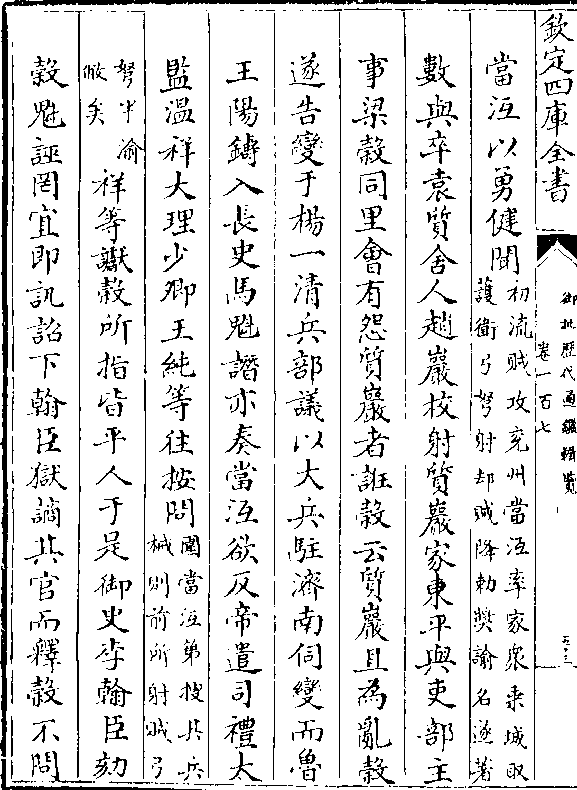 欽定四庫全書
御批歷代通鑑輯覽
卷一百七
當沍以勇健聞初流賊攻兗州當沍率家衆乘城取
護衛弓弩射却賊降勅奬諭名遂著
數與卒袁質舍人趙巖校射質巖家東平與吏部主
事梁穀同里會有怨質巖者誑穀云質巖且為亂穀
遂告變于楊一清兵部議以大兵駐濟南伺變而魯
王陽鑄入長史馬魁譖亦奏當沍欲反帝遣司禮太
監温祥大理少卿王純等往按問圍當沍第搜其兵
械則前所射賊弓
弩半渝
敝矣祥等讞穀所指皆平人于是御史李翰臣劾
穀魁誣罔宜即訊詔下翰臣獄謫其官而釋穀不問